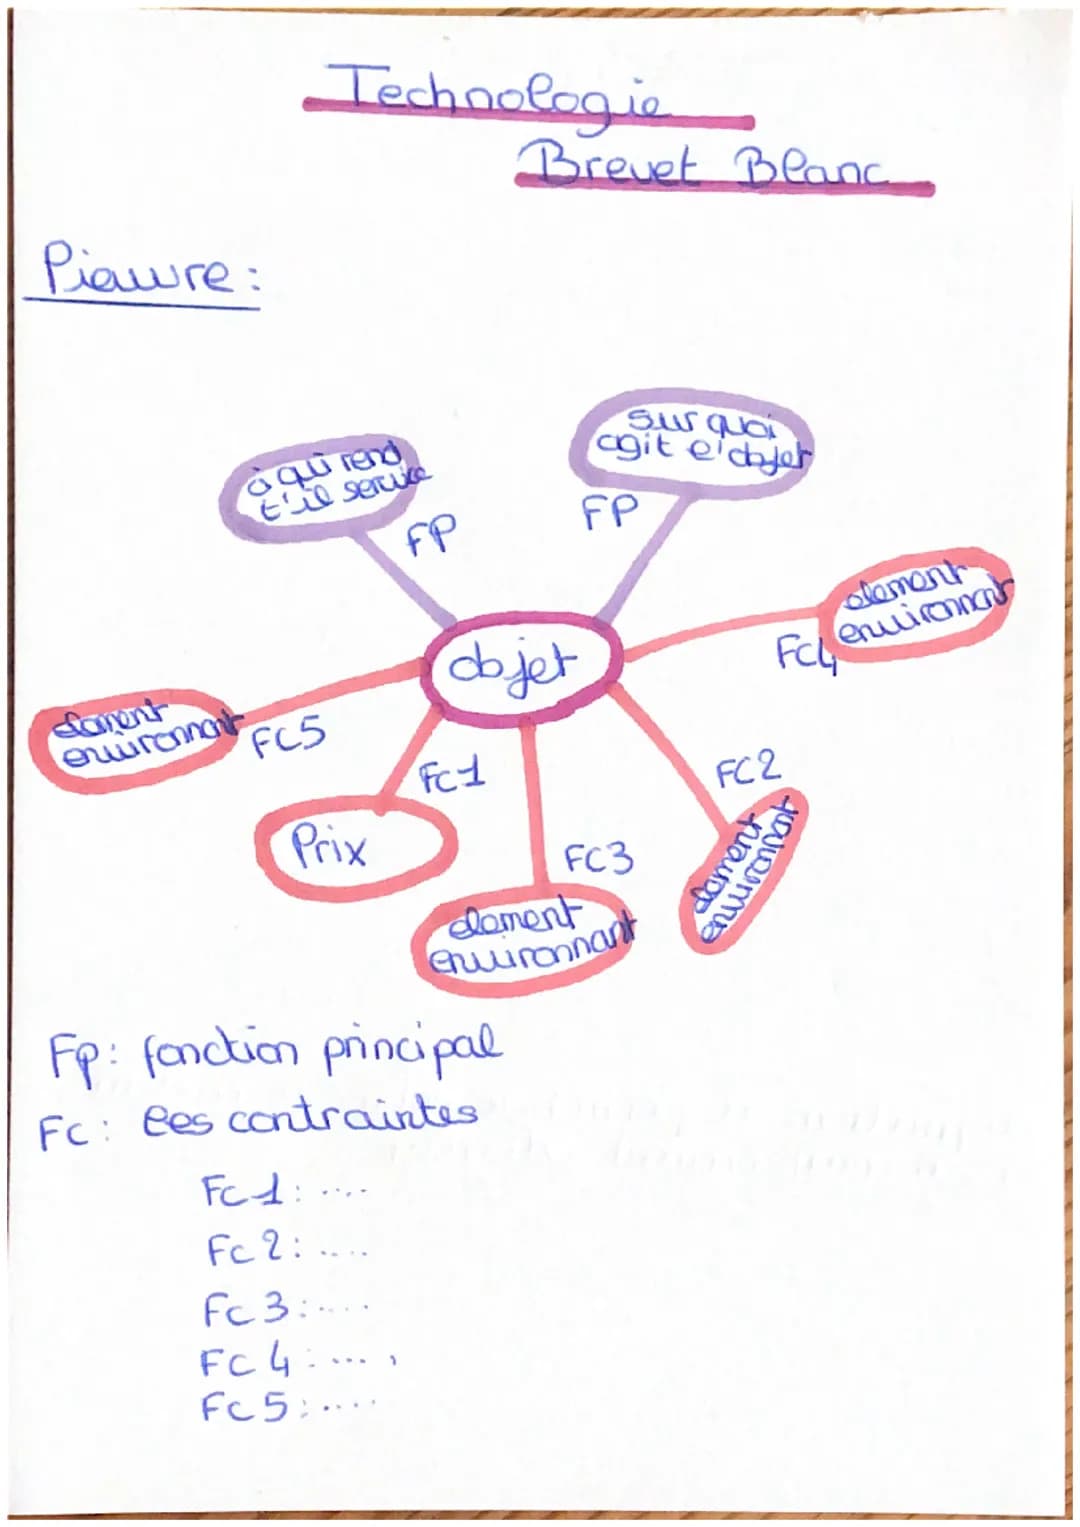 Technologie
Brevet Blanc
Pieuvre :
à qui rend
t'il service
FP
sur quoi
agit l'objet
FP
objet
element
environnant
FC4
element
environnant
FC5
FC1
Prix
FC3
element
environnant
FC2
element
environnant
Fp : fonction principal
Fc : les contraintes
Fc 1 : ....
Fc 2 : ....
Fc 3 : ....
Fc 4 : ....,
Fc 5 : .....